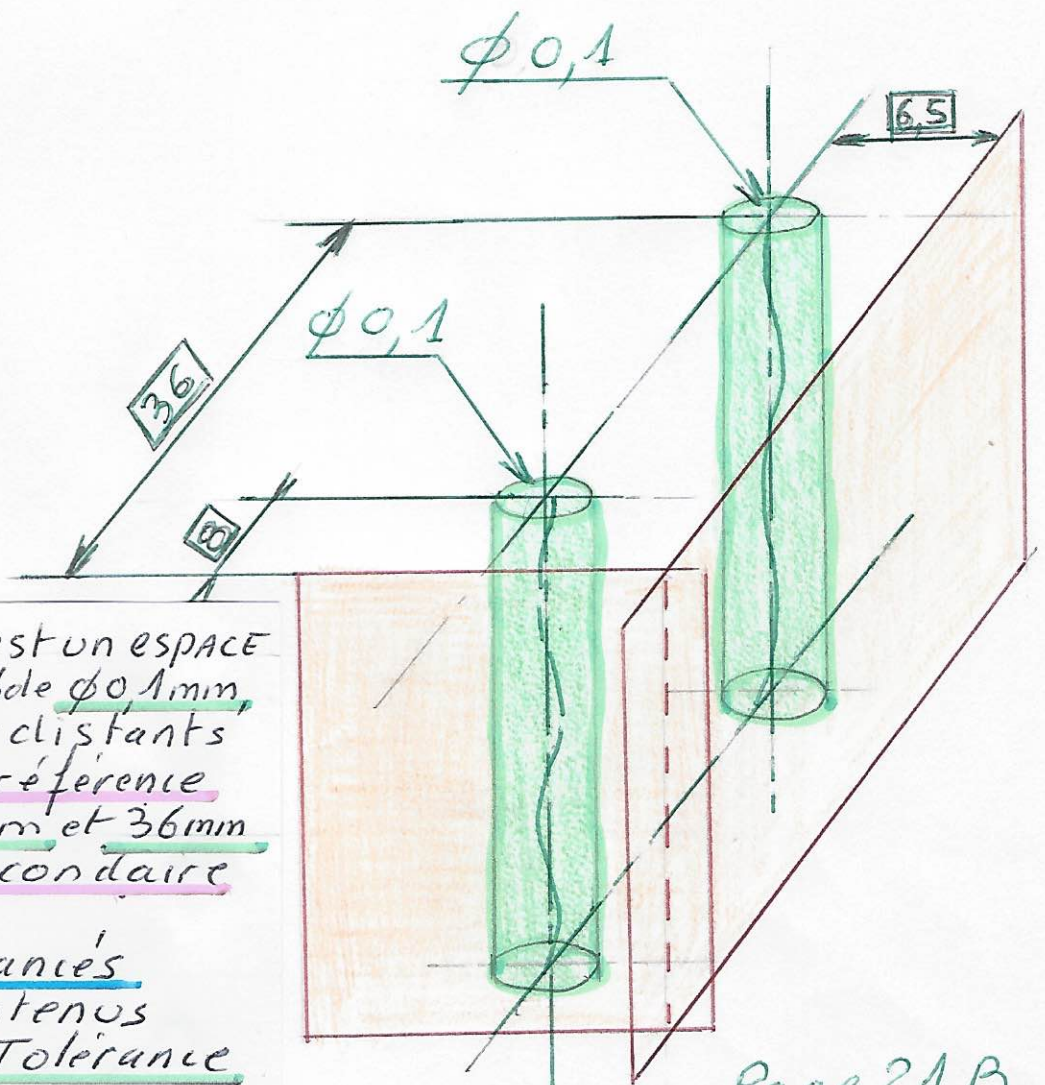 φ 0,1
6,5
φ 0,1
36
8
est un ESPACE
de φ0,1mm,
distants
référence
m et 36mm
condaire
anciés
tenus
Tolérance
Page 21 B